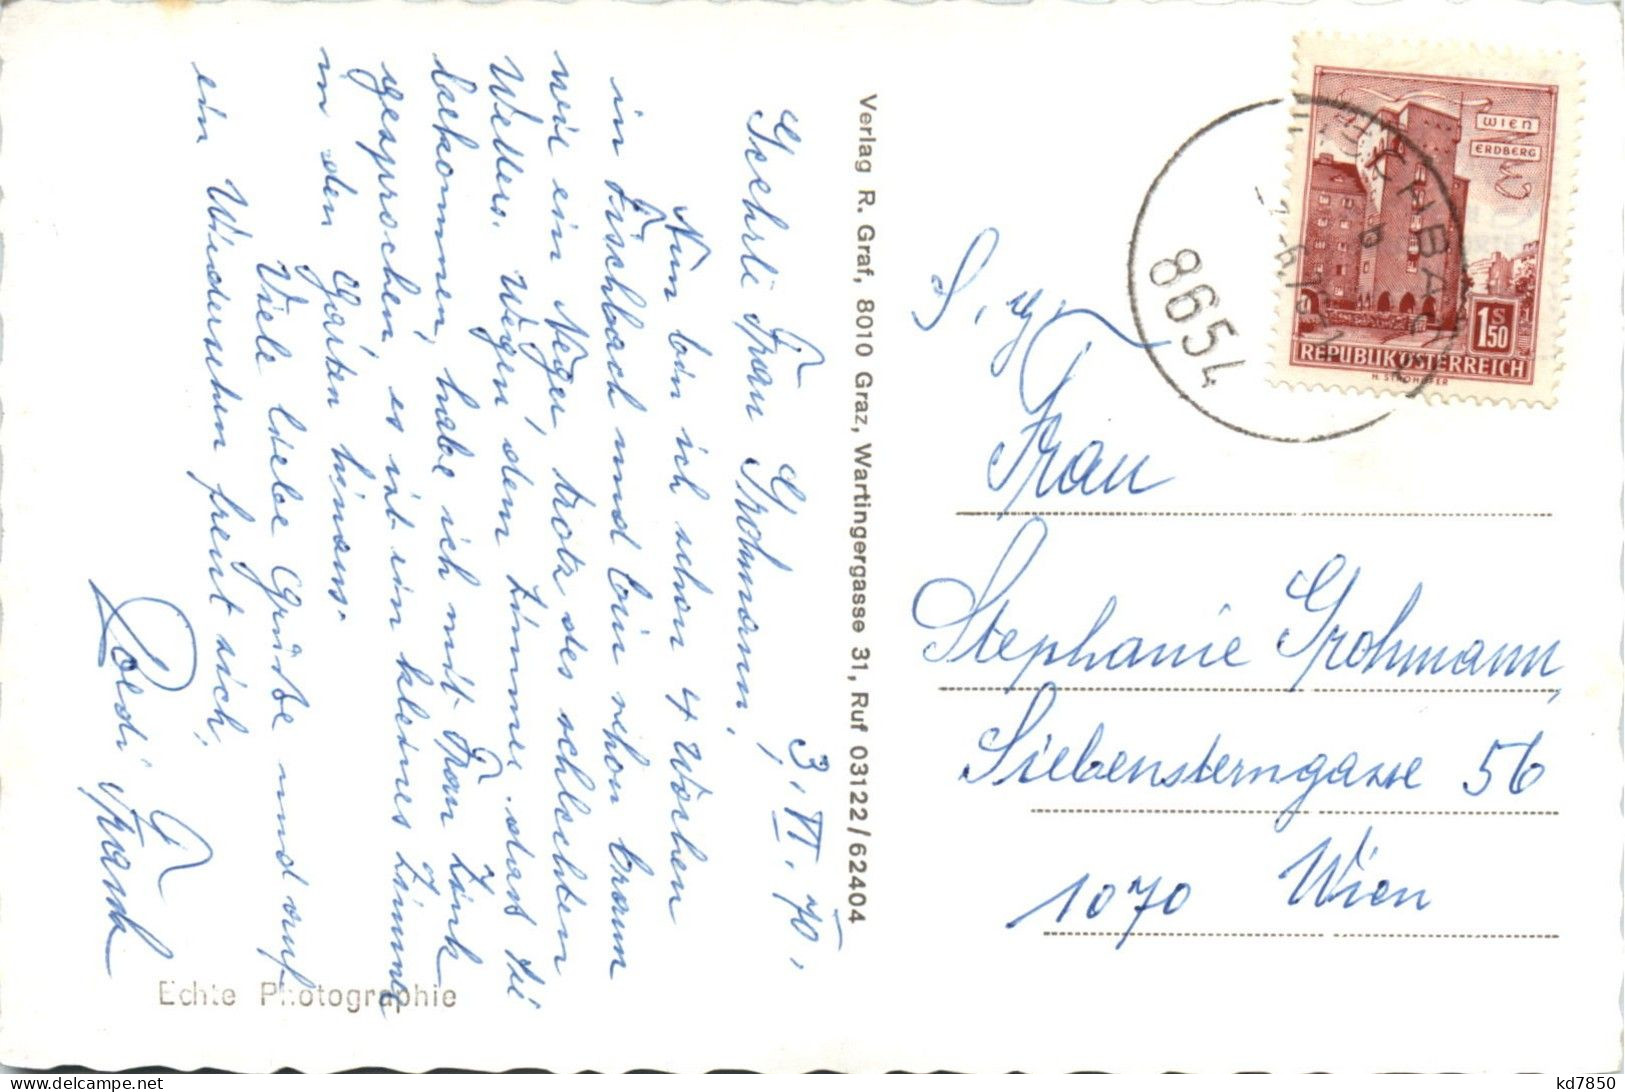 3. VI. 70.
Geehrte Frau Grohmann,
Nun bin ich schon 4 Wochen
in Fischbach und bin schon braun
wie ein Neger, trotz des schlechten
Wetters. Wegen dem Zimmer, dass Sie
bekommen, habe ich mit Frau Zink
gesprochen, es ist ein kleines Zimmer
in den Garten hinaus.
Viele liebe Grüße und auf
ein Wiedersehen freut sich,
Poldi Frank
Echte Photographie
Verlag R. Graf, 8010 Graz, Wartingergasse 31, Ruf 03122/62404
WIEN
ERDBERG
1 S 50
REPUBLIK ÖSTERREICH
FISCHBACH
b
8654
S. g.
Frau
Stephanie Grohmann,
Siebensterngasse 56
1070 Wien
kd7850